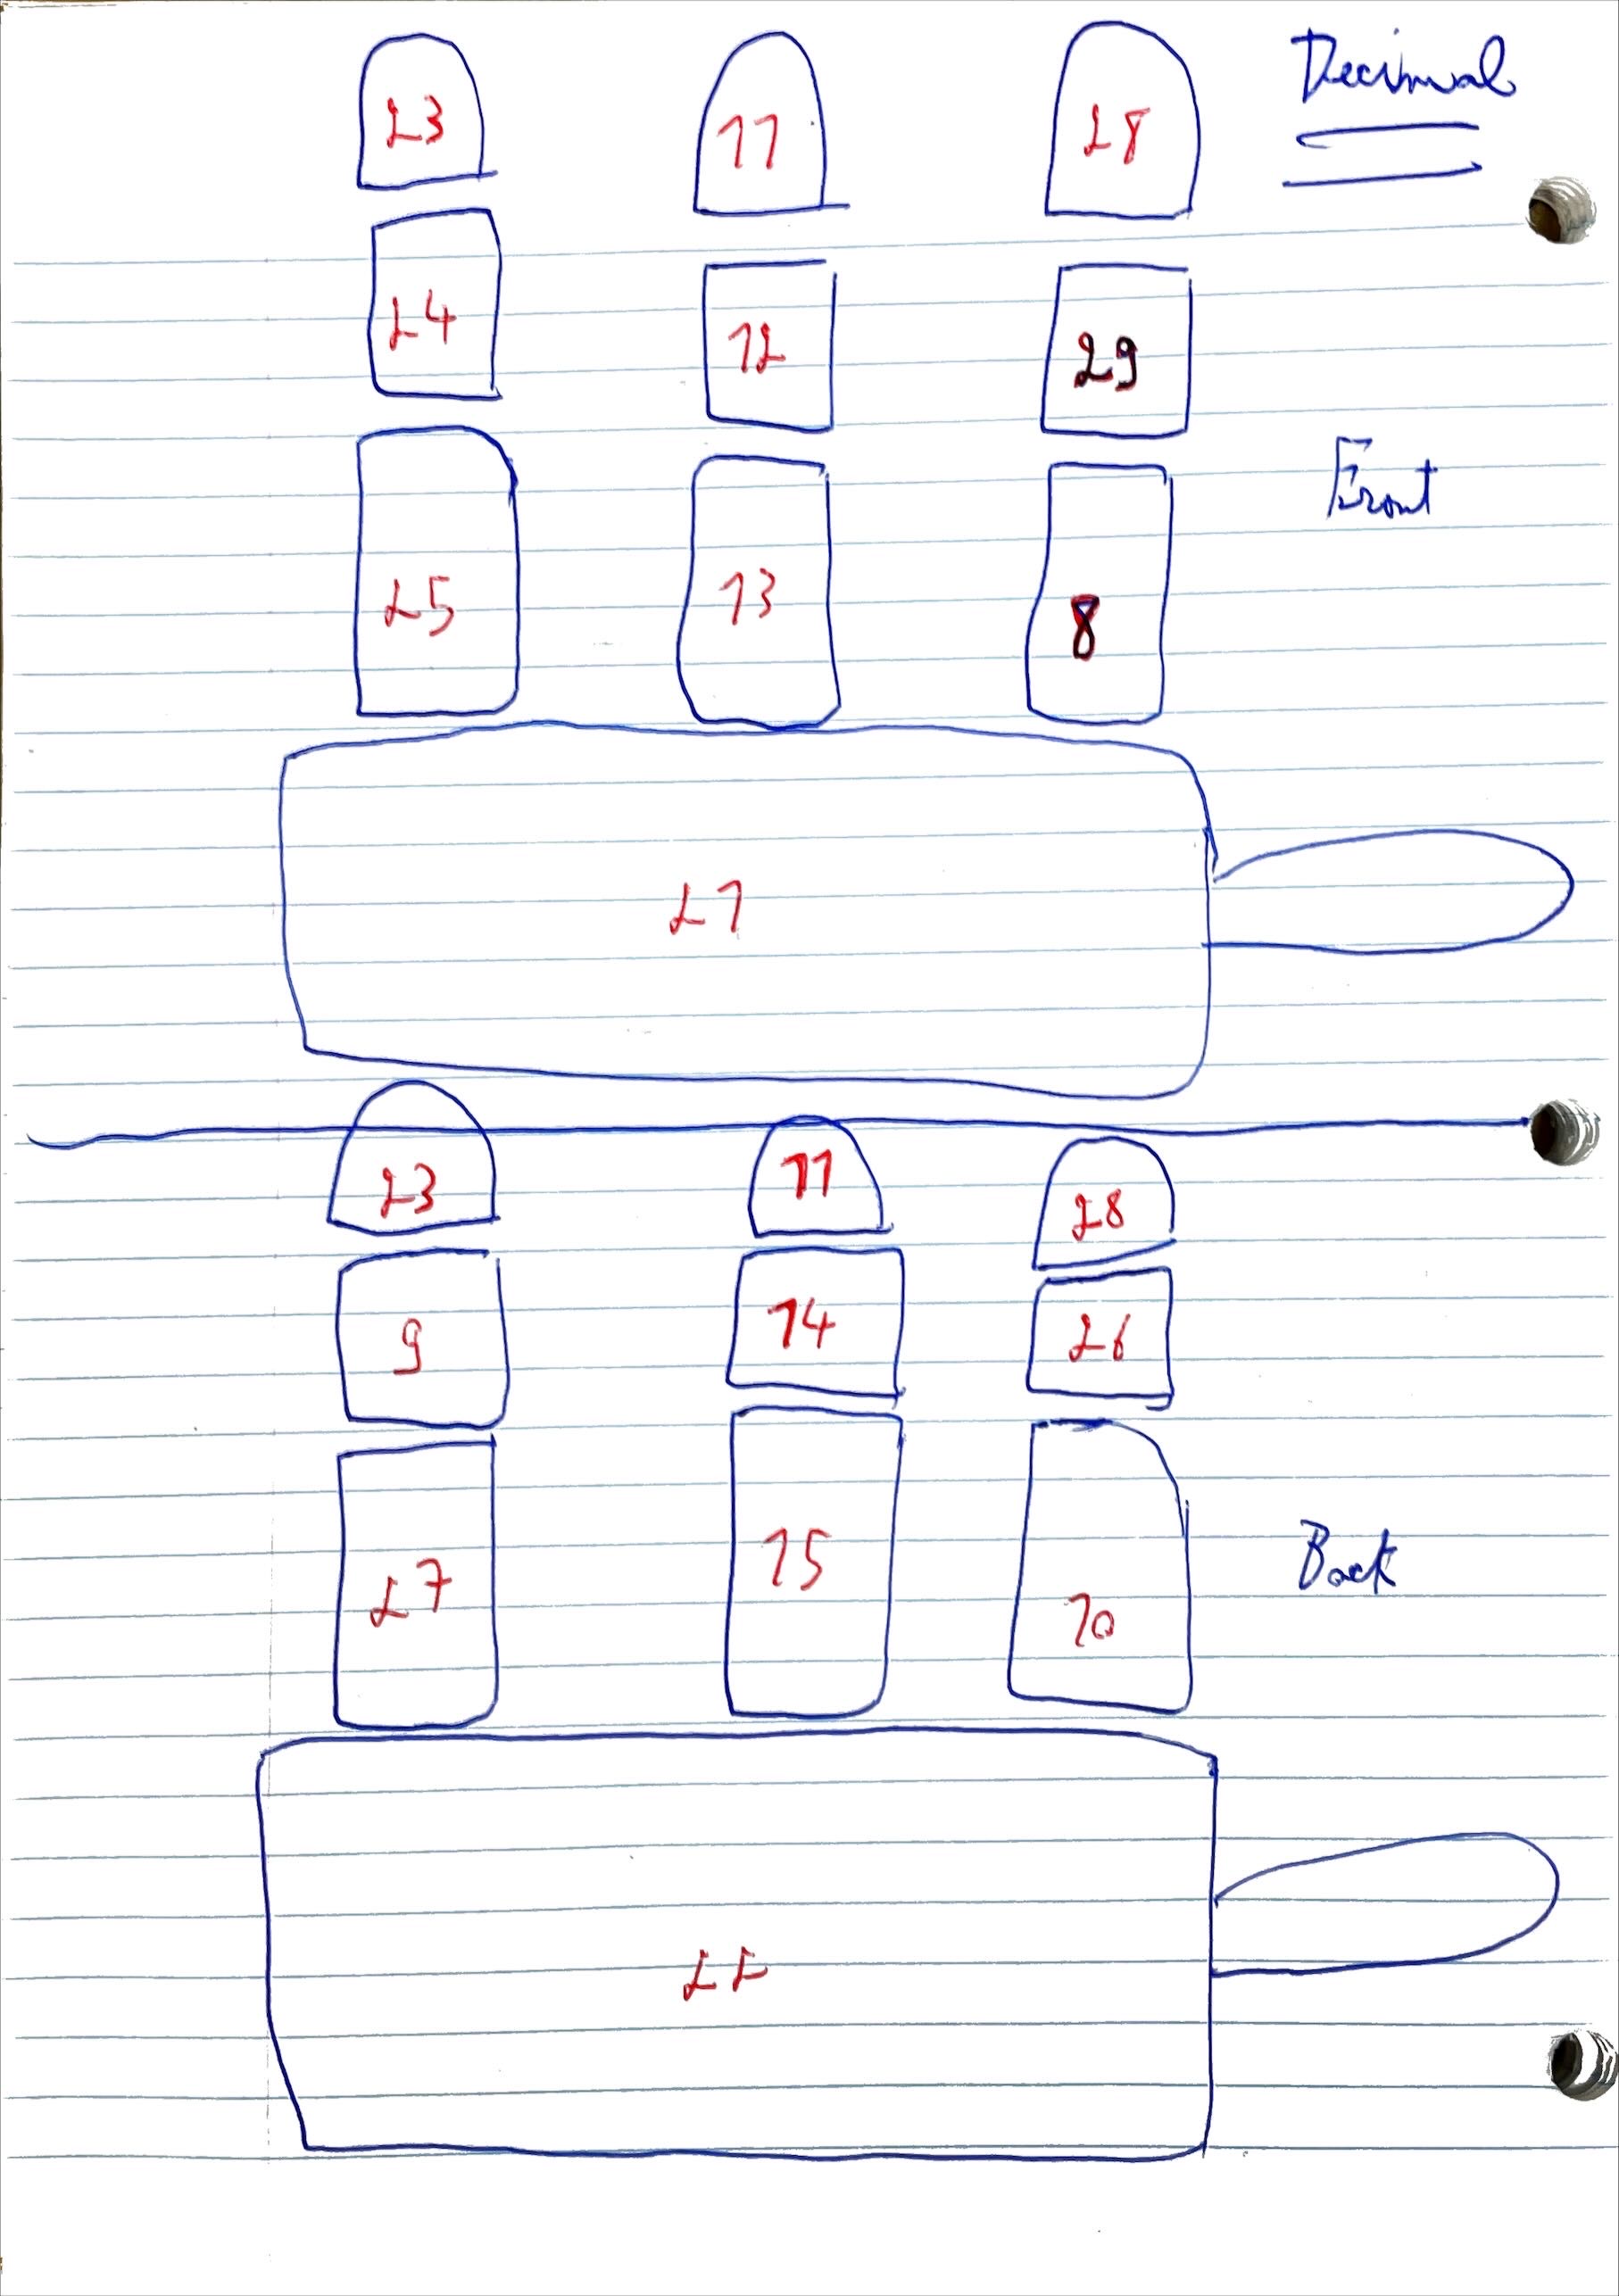 Decimal
23 11 28
24 12 29
Front
25 13 8
21
23 11 28
9 14 26
Back
27 15 10
22